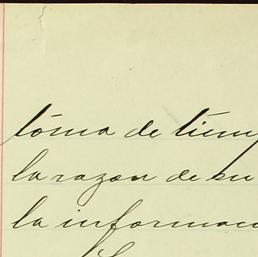 tóma de tiem
la razon de su
la informac